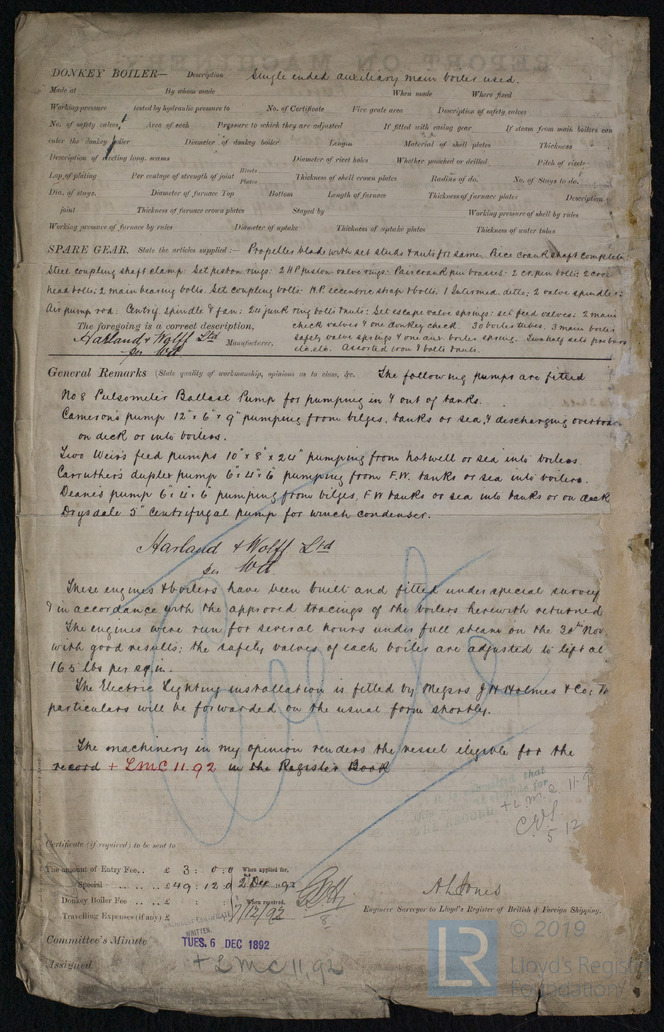 DONKEY BOILER— Description Single ended auxiliary main boiler used.
Made at By whom made When made Where fixed
Working pressure tested by hydraulic pressure to No. of Certificate Fire grate area Description of safety valves
No. of safety valves Area of each Pressure to which they are adjusted If fitted with easing gear If steam from main boilers can
enter the donkey boiler Diameter of donkey boiler Length Material of shell plates Thickness
Description of riveting long. seams Diameter of rivet holes Whether punched or drilled Pitch of rivets
Lap of plating Per centage of strength of joint Rivets Plates Thickness of shell crown plates Radius of do. No. of Stays to do.
Dia. of stays. Diameter of furnace Top Bottom Length of furnace Thickness of furnace plates Description
joint Thickness of furnace crown plates Stayed by Working pressure of shell by rules
Working pressure of furnace by rules Diameter of uptake Thickness of uptake plates Thickness of water tubes
SPARE GEAR. State the articles supplied:— Propeller blade with set studs & nuts for same. Piece crank shaft complete
Steel coupling shaft clamp: Set piston rings: 2 H.P. piston valve rings: Pair crank pin brasses: 2 cr. pin bolts: 2 cross
head bolts; 2 main bearing bolts. Set coupling bolts: H.P. eccentric strap & bolts. 1 Intermed. ditto; 2 valve spindles:
Air pump rod: Centry. spindle & fan: 24 junk ring bolts & nuts: Set escape valve springs: set feed valves: 2 main
The foregoing is a correct description, check valves & one donkey check. 30 boiler tubes. 3 main boiler
Harland & Wolff Ltd Manufacturer, safety valve springs & one aux. boiler spring. Two half sets fire bars
per etc. etc. Assorted iron & bolts & nuts.
General Remarks (State quality of workmanship, opinions as to class, &c. The following pumps are fitted
No 8 Pulsometer Ballast Pump for pumping in & out of tanks.
Cameron's pump 12" x 6" x 9" pumping from bilges, tanks or sea, & discharging overboard
on deck or into boilers.
Two Weir's feed pumps 10" x 8" x 24" pumping from hotwell or sea into boilers.
Carruther's duplex pump 6" x 4" x 6" pumping from F.W. tanks or sea into boilers.
Deanes pump 6" x 4" x 6" pumping from bilges, F.W tanks or sea into tanks or on deck
Drysdale 5" Centrifugal pump for winch condenser.
Harland & Wolff Ltd
per
These engines & boilers have been built and fitted under special survey
& in accordance with the approved tracings of the boilers herewith returned
The engines were run for several hours under full steam on the 30th Nov
with good results; the safety valves of each boiler are adjusted to lift at
165 lbs per sq in.
The Electric Lighting installation is fitted by Messrs J H Holmes & Co; The
particulars will be forwarded on the usual form shortly.
The machinery in my opinion renders the vessel eligible for the
record + LMC 11.92 in the Register Book
that
for
THE RECORD + L.M.C. 11.9
5 12
Certificate (if required) to be sent to
The amount of Entry Fee.. £ 3 : 0 : 0 When applied for,
Special .. £ 49 : 12 : 0 2nd Dec 1892
Donkey Boiler Fee .. £ : : When received,
Travelling Expenses (if any) £ 7/12/92
A L Jones
Engineer Surveyor to Lloyd's Register of British & Foreign Shipping.
WRITTEN.
Committee's Minute TUES. 6 DEC 1892
Assigned + LMC 11.92
LR © 2019
Lloyd's Register
Foundation